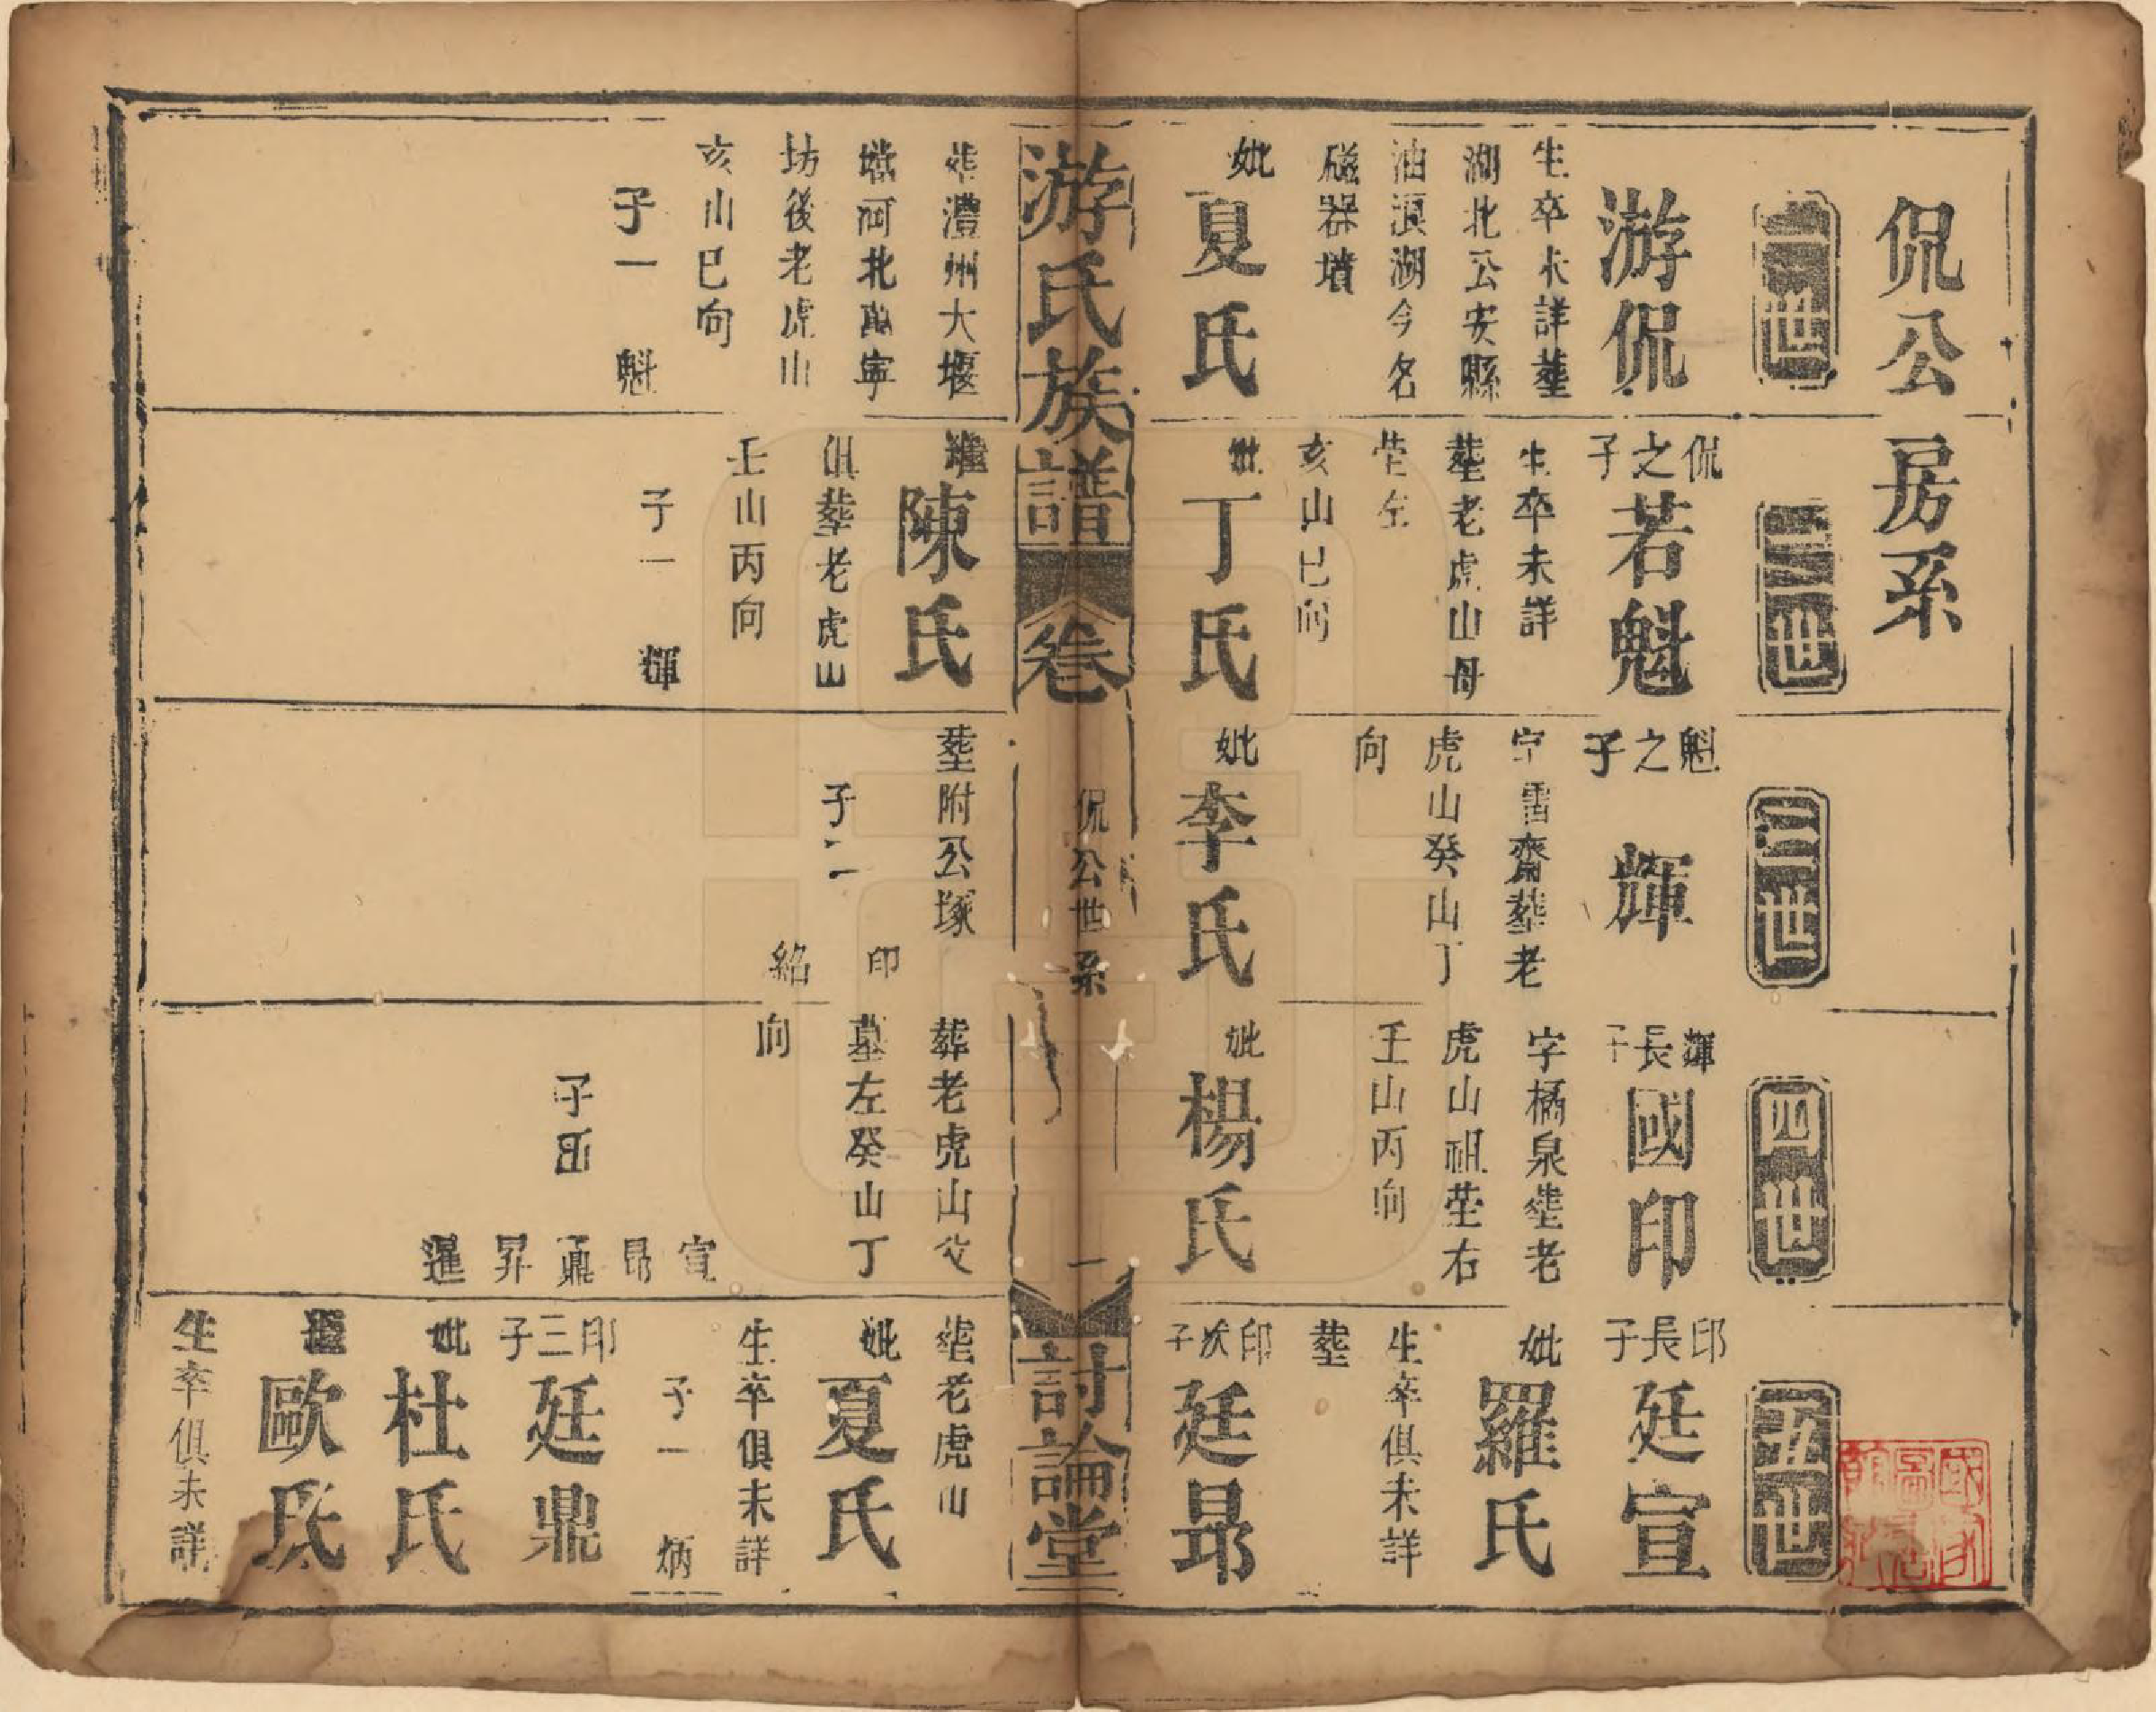 侃公房系
一世
游侃
生卒未詳塟
湖北公安縣
油浪湖今名
磁器墳
妣
夏氏
塟澧州大堰
壋河北萬寧
坊後老虎山
亥山巳向
子一 魁
二世
侃之子
若魁
生卒未詳
塟老虎山母
塋左
亥山巳向
妣
丁氏
繼
陳氏
俱塟老虎山
壬山丙向
子一 輝
三世
魁之子
輝
字雪齋塟老
虎山癸山丁
向
妣
李氏
塟附公塚
子二
印
紹
四世
輝長子
國印
字橘泉塟老
虎山祖塋右
壬山丙向
妣
楊氏
葬老虎山父
墓左癸山丁
向
子五
宣
昂
鼎
昇
暹
五世
印長子
廷宣
妣
羅氏
生卒俱未詳
塟
印次子
廷昂
塟老虎山
妣
夏氏
生卒俱未詳
子一 炳
印三子
廷鼎
妣
杜氏
繼
歐氏
生卒俱未詳
游氏族譜
卷
侃公世系
一
討論堂